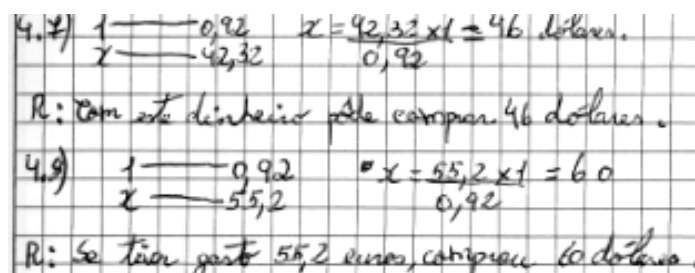 4.7) 1 —— 0,92 x = 42,32 x 1 = 46 dólares.
x —— 42,32 0,92
R: Com este dinheiro pôde comprar 46 dólares.
4.8) 1 —— 0,92 • x = 55,2 x 1 = 60
x —— 55,2 0,92
R: Se tiver gasto 55,2 euros, comprou 60 dólares